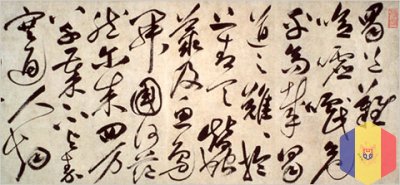 蜀道難
噫吁嚱危
乎高哉蜀
道之難於
上青天蠶
叢及魚鳧
開國何茫
然爾來四万
塞通人烟